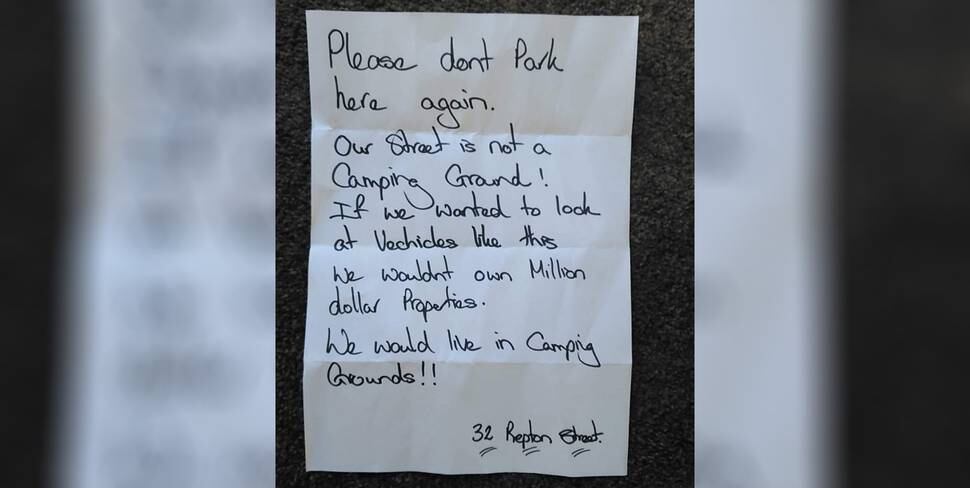 Please dont Park
here again.
Our Street is not a
Camping Ground!
If we wanted to look
at Vechicles like this
We wouldnt own Million
dollar Properties.
We would live in Campig
Grounds!!
32 Repton Street.